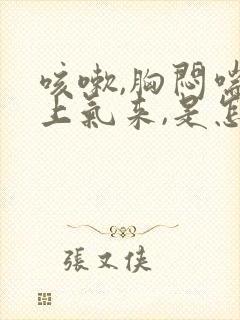 咳嗽,胸悶喘
上氣來,是怎
張又俠